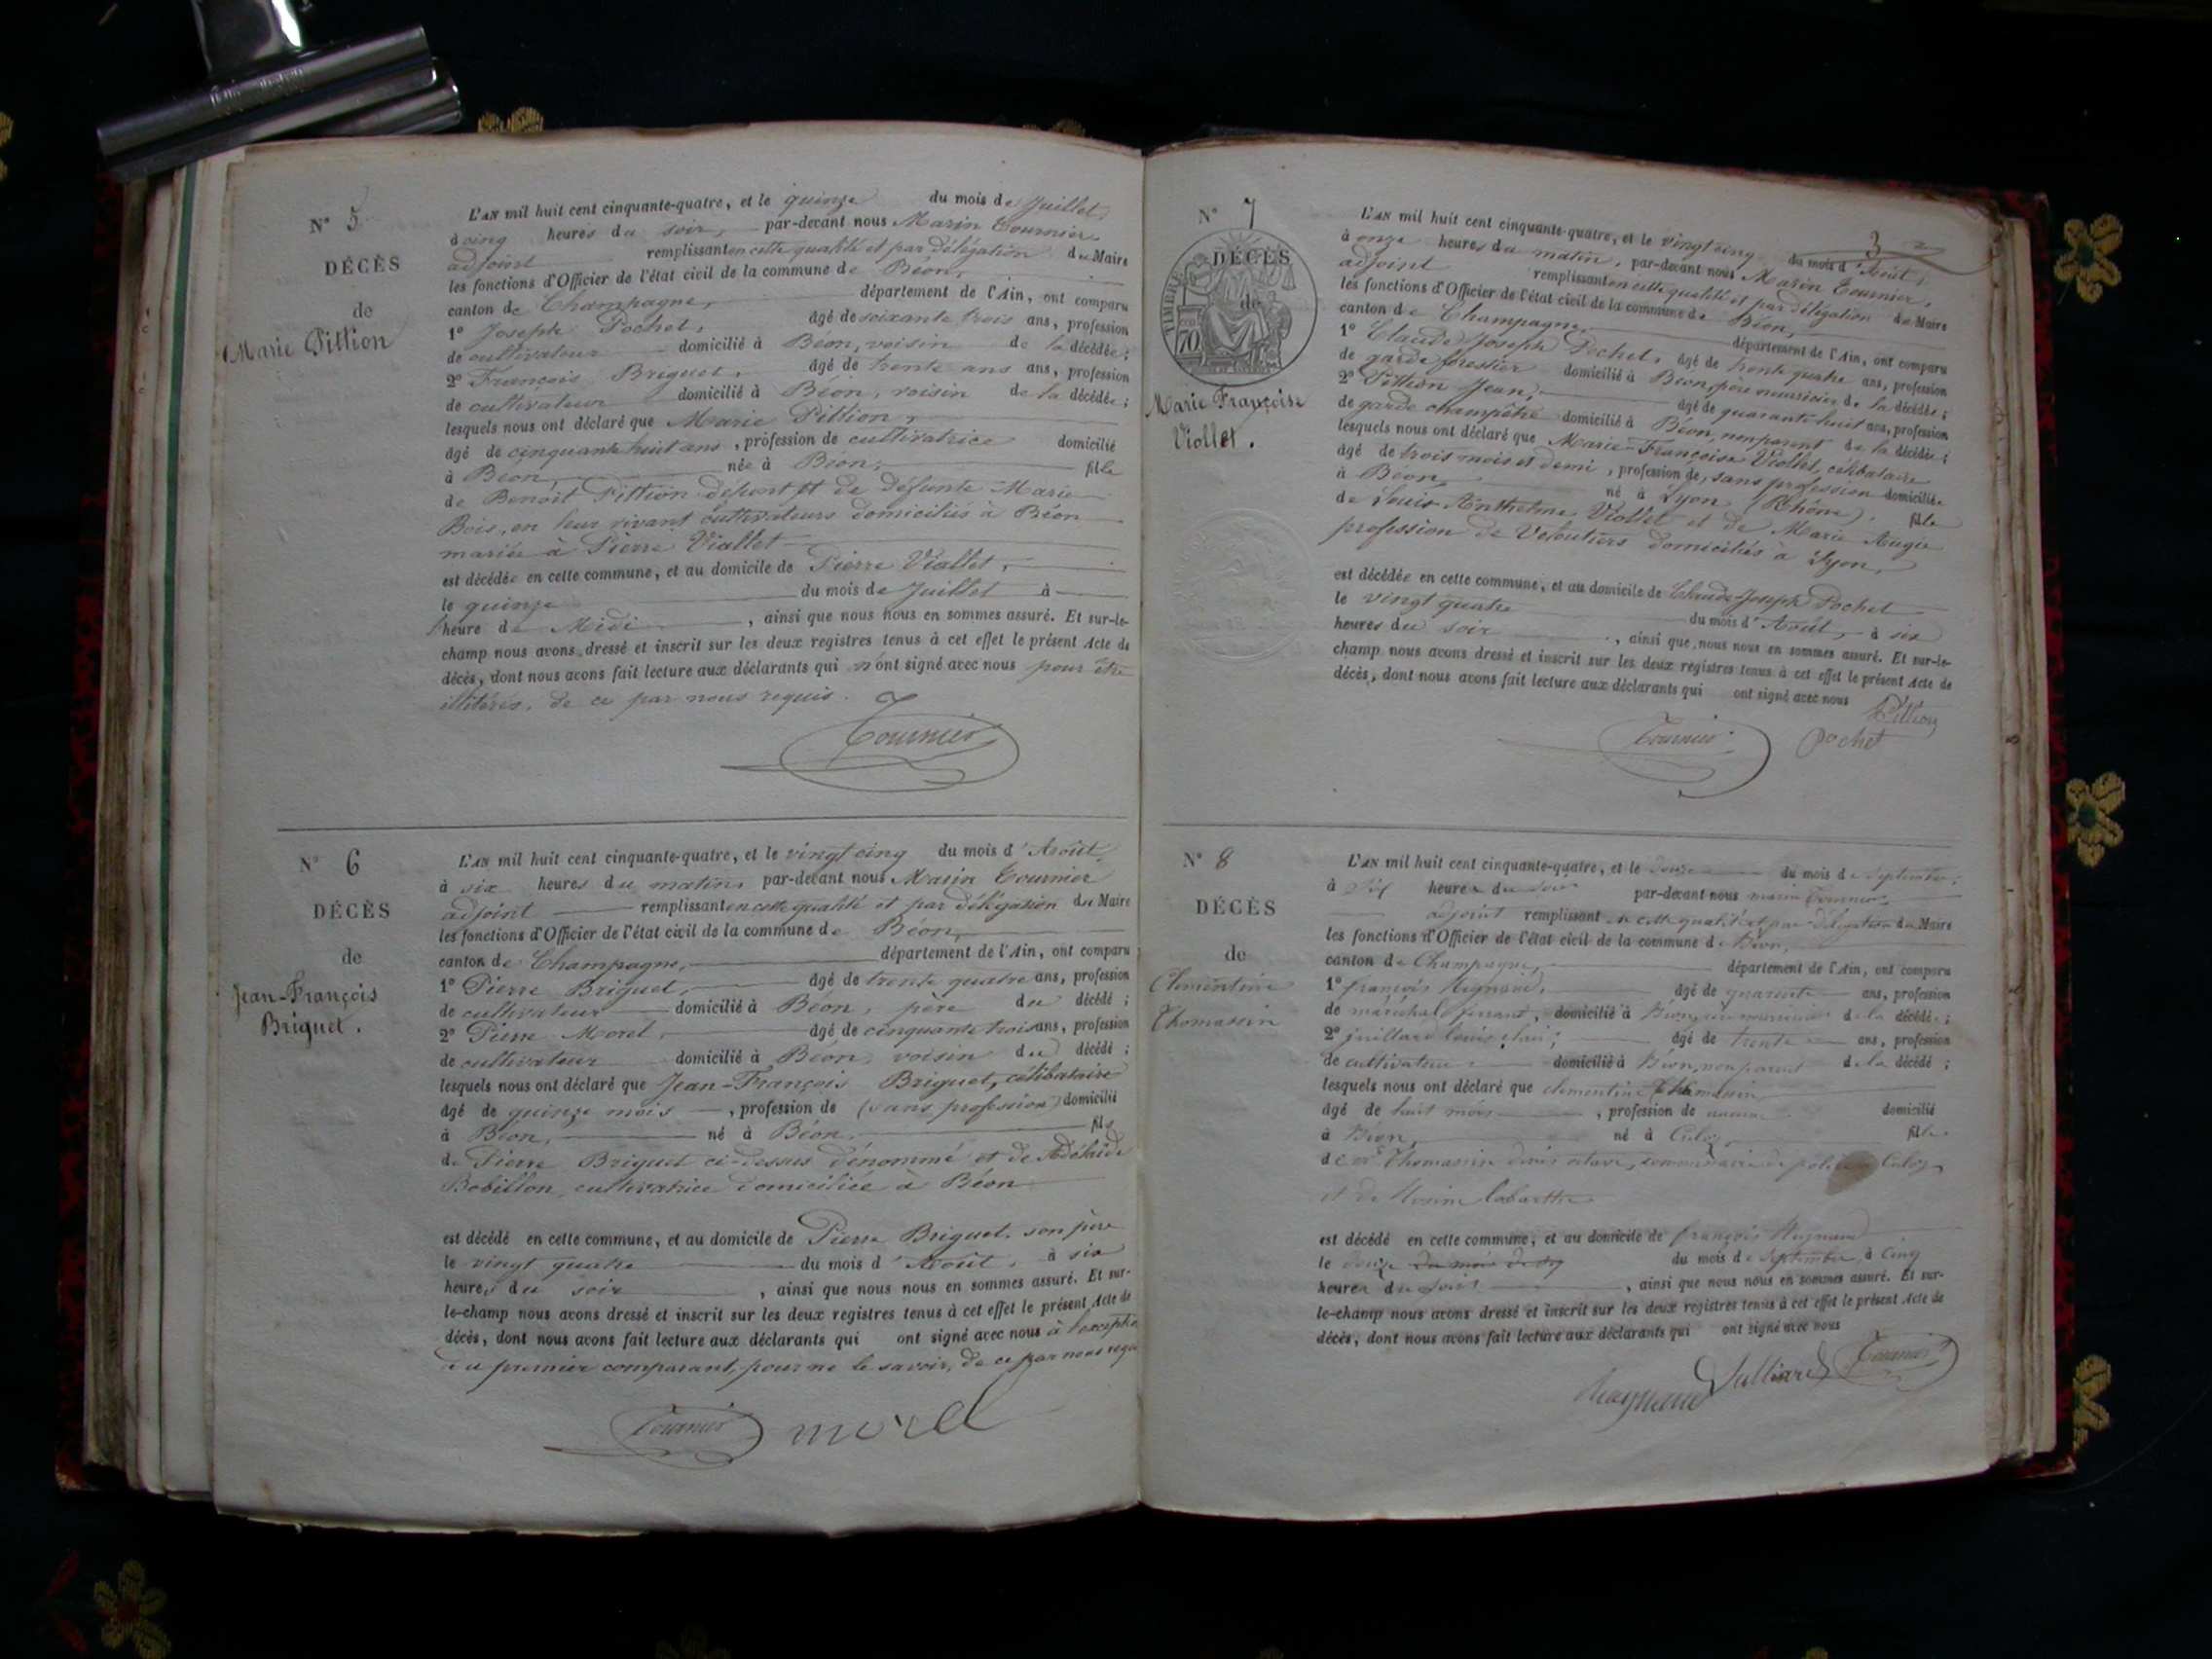 N° 5
DÉCÈS
de
Marie Pittion
L'AN mil huit cent cinquante-quatre, et le quinze du mois de Juillet,
à cinq heures du soir, par-devant nous Marin Tournier,
adjoint remplissant en cette qualité et par délégation du Maire
les fonctions d'Officier de l'état civil de la commune de Béon,
canton de Champagne, département de l'Ain, ont comparu
1° Joseph Pochet, âgé de soixante trois ans, profession
de cultivateur domicilié à Béon, voisin de la décédée;
2° François Briguet, âgé de trente ans ans, profession
de cultivateur domicilié à Béon, voisin de la décédée;
lesquels nous ont déclaré que Marie Pittion,
âgé de cinquante huit ans, profession de cultivatrice domicilié
à Béon, née à Béon, fille
de Benoit Pittion défunt et de défunte Marie
Bois, en leur vivant cultivateurs domiciliés à Béon
mariée à Pierre Viallet
est décédée en cette commune, et au domicile de Pierre Viallet,
le quinze du mois de Juillet à
heure de Midi, ainsi que nous nous en sommes assuré. Et sur-le-
champ nous avons dressé et inscrit sur les deux registres tenus à cet effet le présent Acte de
décès, dont nous avons fait lecture aux déclarants qui n'ont signé avec nous pour être
illitérés, de ce par nous requis.
Tournier
N° 6
DÉCÈS
de
Jean-François
Briguet.
L'AN mil huit cent cinquante-quatre, et le vingt cinq du mois d'Août,
à six heures du matin, par-devant nous Marin Tournier
adjoint remplissant en cette qualité et par délégation du Maire
les fonctions d'Officier de l'état civil de la commune de Béon,
canton de Champagne, département de l'Ain, ont comparu
1° Pierre Briguet, âgé de trente quatre ans, profession
de cultivateur domicilié à Béon, père du décédé;
2° Pierre Morel, âgé de cinquante trois ans, profession
de cultivateur domicilié à Béon, voisin du décédé;
lesquels nous ont déclaré que Jean-François Briguet, célibataire
âgé de quinze mois, profession de (sans profession) domicilié
à Béon, né à Béon. fils
de Pierre Briguet ci-dessus dénommé et de Adélaïde
Bobillon, cultivatrice domiciliée à Béon
est décédé en cette commune, et au domicile de Pierre Briguet, son père
le vingt quatre du mois d'Août, à six
heures du soir, ainsi que nous nous en sommes assuré. Et sur-
le-champ nous avons dressé et inscrit sur les deux registres tenus à cet effet le présent Acte de
décès, dont nous avons fait lecture aux déclarants qui ont signé avec nous à l'exceptio
du premier comparant, pour ne le savoir, de ce par nous requi
Tournier morel
3
N° 7
TIMBRE
70
DÉCÈS
de
Marie Françoise
Viollet.
L'AN mil huit cent cinquante-quatre, et le vingt cinq du mois d'Août,
à onze heures du matin, par-devant nous Marin Tournier,
adjoint remplissant en cette qualité et par délégation du Maire
les fonctions d'Officier de l'état civil de la commune de Béon,
canton de Champagne, département de l'Ain, ont comparu
1° Claude Joseph Pochet, âgé de trente quatre ans, profession
de garde forestier domicilié à Béon, père nourricier de la décédée;
2° Pittion Jean, âgé de quarante huit ans, profession
de garde champêtre domicilié à Béon, non parent de la décédée;
lesquels nous ont déclaré que Marie-Françoise Viollet, célibataire
âgé de trois mois et demi, profession de, sans profession domiciliée
à Béon, né à Lyon (Rhône). fille
de Louis Anthelme Viollet et de Marie Augie
profession de Veloutiers domiciliés à Lyon,
est décédée en cette commune, et au domicile de Claude-Joseph Pochet
le vingt quatre du mois d'Août, à six
heures du soir, ainsi que nous nous en sommes assuré. Et sur-le-
champ nous avons dressé et inscrit sur les deux registres tenus à cet effet le présent Acte de
décès, dont nous avons fait lecture aux déclarants qui ont signé avec nous
Pittion
Tournier Pochet
N° 8
DÉCÈS
de
Clémentine
Thomassin
L'AN mil huit cent cinquante-quatre, et le douze du mois de Septembre,
à Six heures du soir par-devant nous marin Tournier
adjoint remplissant en cette qualité et par délégation du Maire
les fonctions d'Officier de l'état civil de la commune de Béon,
canton de Champagne, département de l'Ain, ont comparu
1° françois Meynaud, âgé de quarente ans, profession
de maréchal ferrant, domicilié à Béon, de la décédée;
2° juillard louis âgé de trente ans, profession
de cultivateur domicilié à Béon, non parent de la décédé;
lesquels nous ont déclaré que clementine Thomassin
âgé de huit mois, profession de aucune domicilié
à Béon, né à Culoz, fille
de Thomassin commissaire de police à Culoz,
et de Labarthe
est décédé en cette commune, et au domicile de françois Meynaud
le douze du mois de Septembre, à Cinq
heures du Soir, ainsi que nous nous en sommes assuré. Et sur-
le-champ nous avons dressé et inscrit sur les deux registres tenus à cet effet le présent Acte de
décès, dont nous avons fait lecture aux déclarants qui ont signé avec nous
Meynaud Julliard Tournier